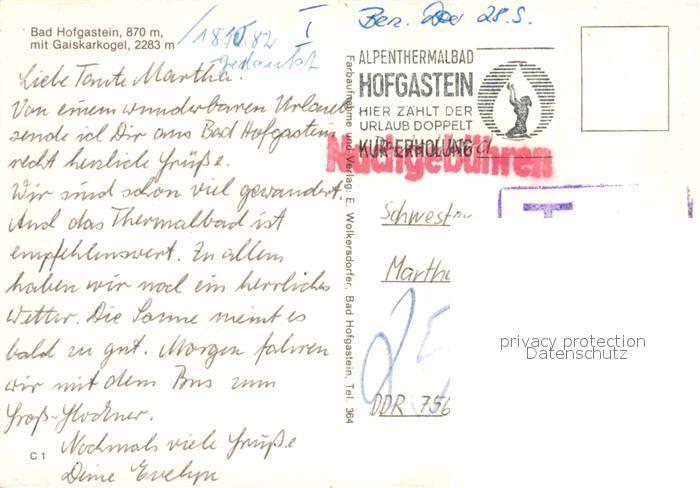 Bad Hofgastein, 870 m,
mit Gaiskarkogel, 2283 m
/18.10.82 I
gedankt
Liebe Tante Martha!
Von einem wunderbaren Urlaub
sende ich Dir aus Bad Hofgastein
recht herzliche Grüße.
Wir sind schon viel gewandert.
And das Thermalbad ist
empfehlenswert. Zu allem
haben wir noch ein herrliches
Wetter. Die Sonne meint es
bald zu gut. Morgen fahren
wir mit dem Bus zum
Groß-Glockner.
Nochmals viele Grüße
Deine Evelyn
C 1
Farbaufnahme und Verlag: E. Wolkersdorfer, Bad Hofgastein, Tel. 364
28.9.
ALPENTHERMALBAD
HOFGASTEIN
HIER ZÄHLT DER
URLAUB DOPPELT
KUR-ERHOLUNG
Nachgebühren
T
Schwest
Martha
25
DDR 756
privacy protection
Datenschutz